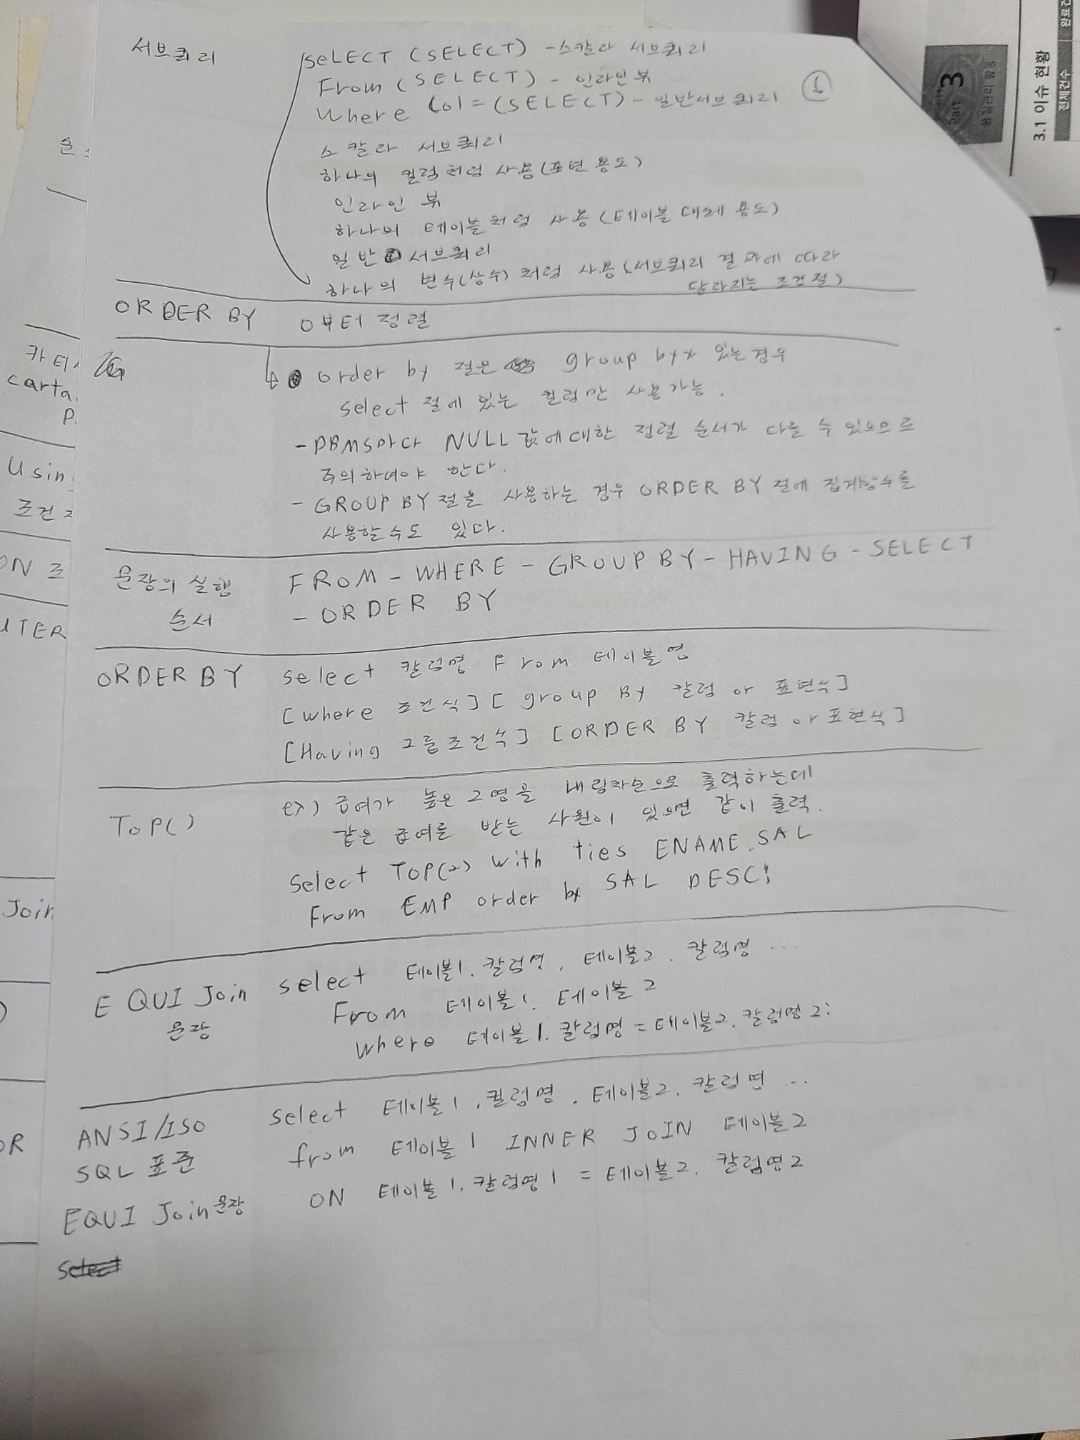 서브쿼리
SELECT (SELECT) - 스칼라 서브쿼리
From (SELECT) - 인라인 뷰
Where Col = (SELECT) - 일반서브쿼리
스칼라 서브쿼리
하나의 컬럼처럼 사용(표현 용도)
인라인 뷰
하나의 테이블처럼 사용 (테이블 대체 용도)
일반 서브쿼리
하나의 변수(상수)처럼 사용(서브쿼리 결과에 따라
달라지는 조건절)
ORDER BY 0부터 정렬
order by 절은 group by가 있는경우
select 절에 있는 컬럼만 사용가능.
- DBMS마다 NULL 값에대한 정렬 순서가 다를 수 있으므로
주의하여야 한다.
- GROUP BY절을 사용하는 경우 ORDER BY 절에 집계함수를
사용할수도 있다.
문장의 실행
순서
FROM - WHERE - GROUP BY - HAVING - SELECT
- ORDER BY
ORDER BY
select 칼럼명 From 테이블명
[where 조건식] [group By 칼럼 or 표현식]
[Having 그룹조건식] [ORDER BY 칼럼 or 표현식]
TOP()
ex) 급여가 높은 2명을 내림차순으로 출력하는데
같은 급여를 받는 사원이 있으면 같이 출력.
Select TOP(2) with ties ENAME, SAL
From EMP order by SAL DESC;
EQUI Join
문장
select 테이블1.칼럼명, 테이블2.칼럼명 ...
From 테이블1, 테이블2
where 테이블1.칼럼명 = 테이블2.칼럼명2;
ANSI/ISO
SQL 표준
EQUI Join 문장
select 테이블1.컬럼명, 테이블2.칼럼명 ...
from 테이블1 INNER JOIN 테이블2
ON 테이블1.칼럼명1 = 테이블2.칼럼명2
카티
carta
P
Usin
조건
ON 조
UTER
Join
OR
Part 3
품질관리 활동
3.1 이슈 현황
전체건수